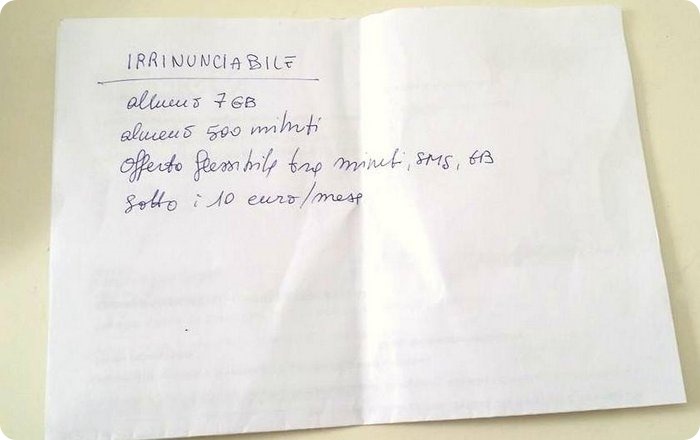 IRRINUNCIABILE
almeno 7 GB
almeno 500 minuti
offerta flessibile tra minuti, SMS, GB
sotto i 10 euro/mese